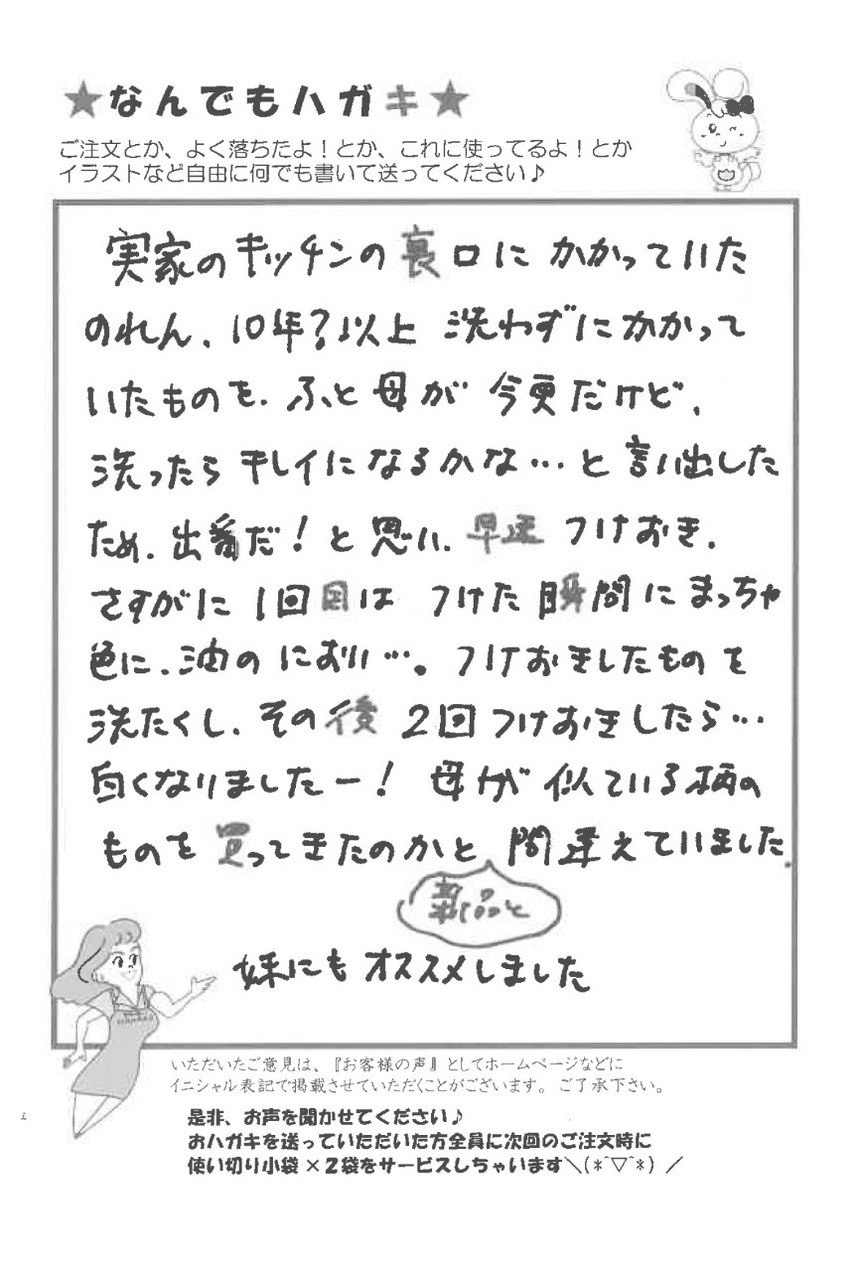 ★なんでもハガキ★
ご注文とか、よく落ちたよ！とか、これに使ってるよ！とか
イラストなど自由に何でも書いて送ってください♪
実家のキッチンの裏口にかかっていた
のれん、10年？以上 洗わずにかかって
いたものを、ふと母が 今更だけど、
洗ったらキレイになるかな…と言い出した
ため、出番だ！と思い、早速 つけおき、
さすがに1回目は つけた瞬間にまっちゃ
色に、油の におい…。つけおきしたものを
洗たくし、その後 2回つけおきしたら…
白くなりましたー！ 母が 似ている柄の
ものを買ってきたのかと 間違えていました。
新品と
妹にもオススメしました
いただいたご意見は、『お客様の声』としてホームページなどに
イニシャル表記で掲載させていただくことがございます。ご了承下さい。
是非、お声を聞かせてください♪
おハガキを送っていただいた方全員に次回のご注文時に
使い切り小袋×2袋をサービスしちゃいます＼(*^▽^*)／